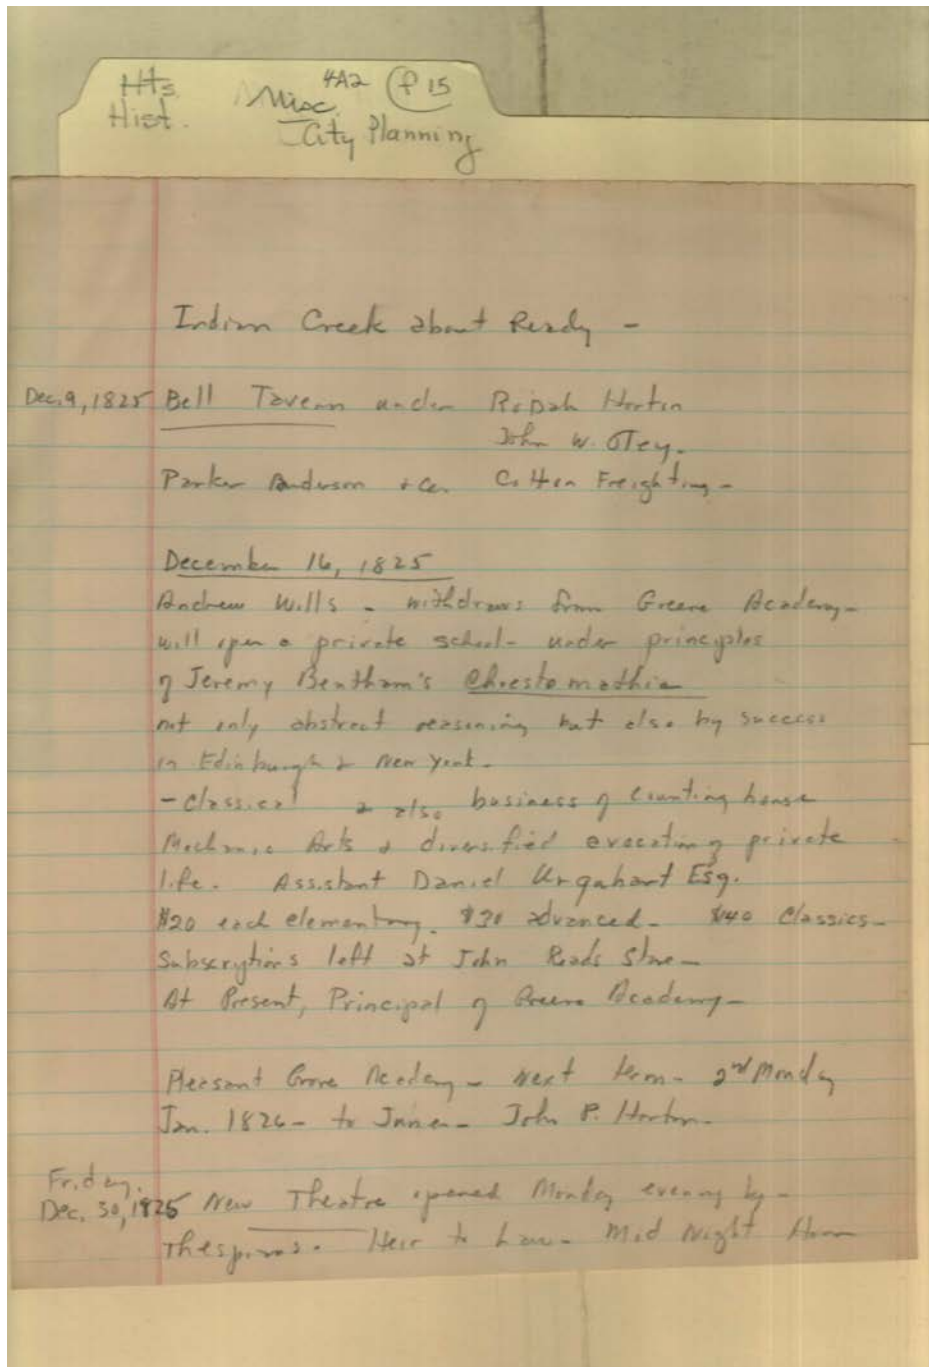 Hts. Misc. 4A2 P 15
Hist. City Planning
Indian Creek about Ready -
Dec. 9, 1825 Bell Tavern under Horton
John W. Otey.
Parker Anderson + Co. Cotton Freighting -
December 16, 1825
Andrew Wills - withdraws from Greene Academy -
will open a private school - under principles
of Jeremy Bentham's Chrestomathia
not only abstract reasoning but also by success
in Edinburgh & New York.
- Classical & also business of counting house
Mechanic Arts & diversified of private
life. Assistant Daniel Urquhart Esq.
$20 each elementary. $30 advanced - $40 Classics -
Subscryptions left at John Reads Store -
At Present, Principal of Greene Academy -
Pleasant Grove Academy - next term - 2nd Monday
Jan. 1826 - to June - John P. Horton -
Friday.
Dec. 30, 1825 New Theatre opened Monday evening by -
Thespians. Heir to Law - Mid Night Hour